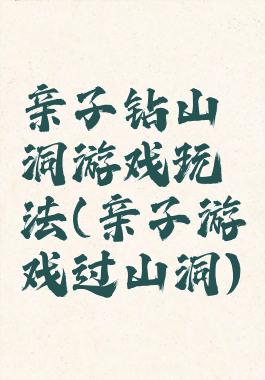 亲子钻山
洞游戏玩
法(亲子游
戏过山洞)